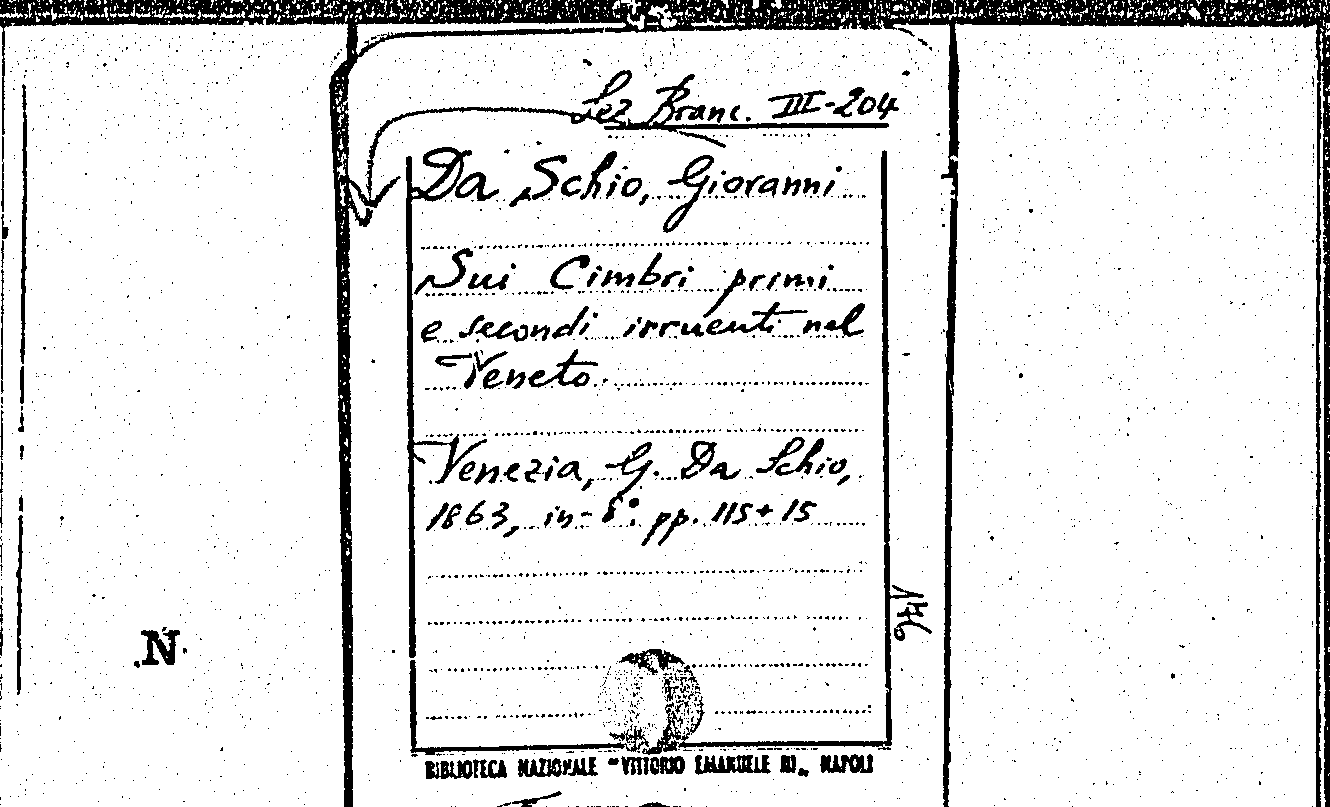 Sez. Branc. III-204
Da Schio, Giovanni
Sui Cimbri primi
e secondi irruenti nel
Veneto.
Venezia, G. Da Schio,
1863, in-8°. pp. 115+15
146
N
BIBLIOTECA NAZIONALE "VITTORIO EMANUELE III„ NAPOLI